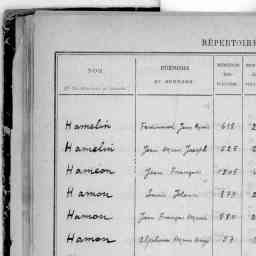 RÉPERTOIRE
NOM
PRÉNOMS
ET SURNOMS
NUMÉROS
Hamelin Ferdinand Jean Marie 618 2
Hamelin Jean Marie Joseph 525 2
Hameon Jean François 1205
Hamon Louis 879 2
Hamon Jean François Marie 680 2
Hamon Alphonse Marie 57